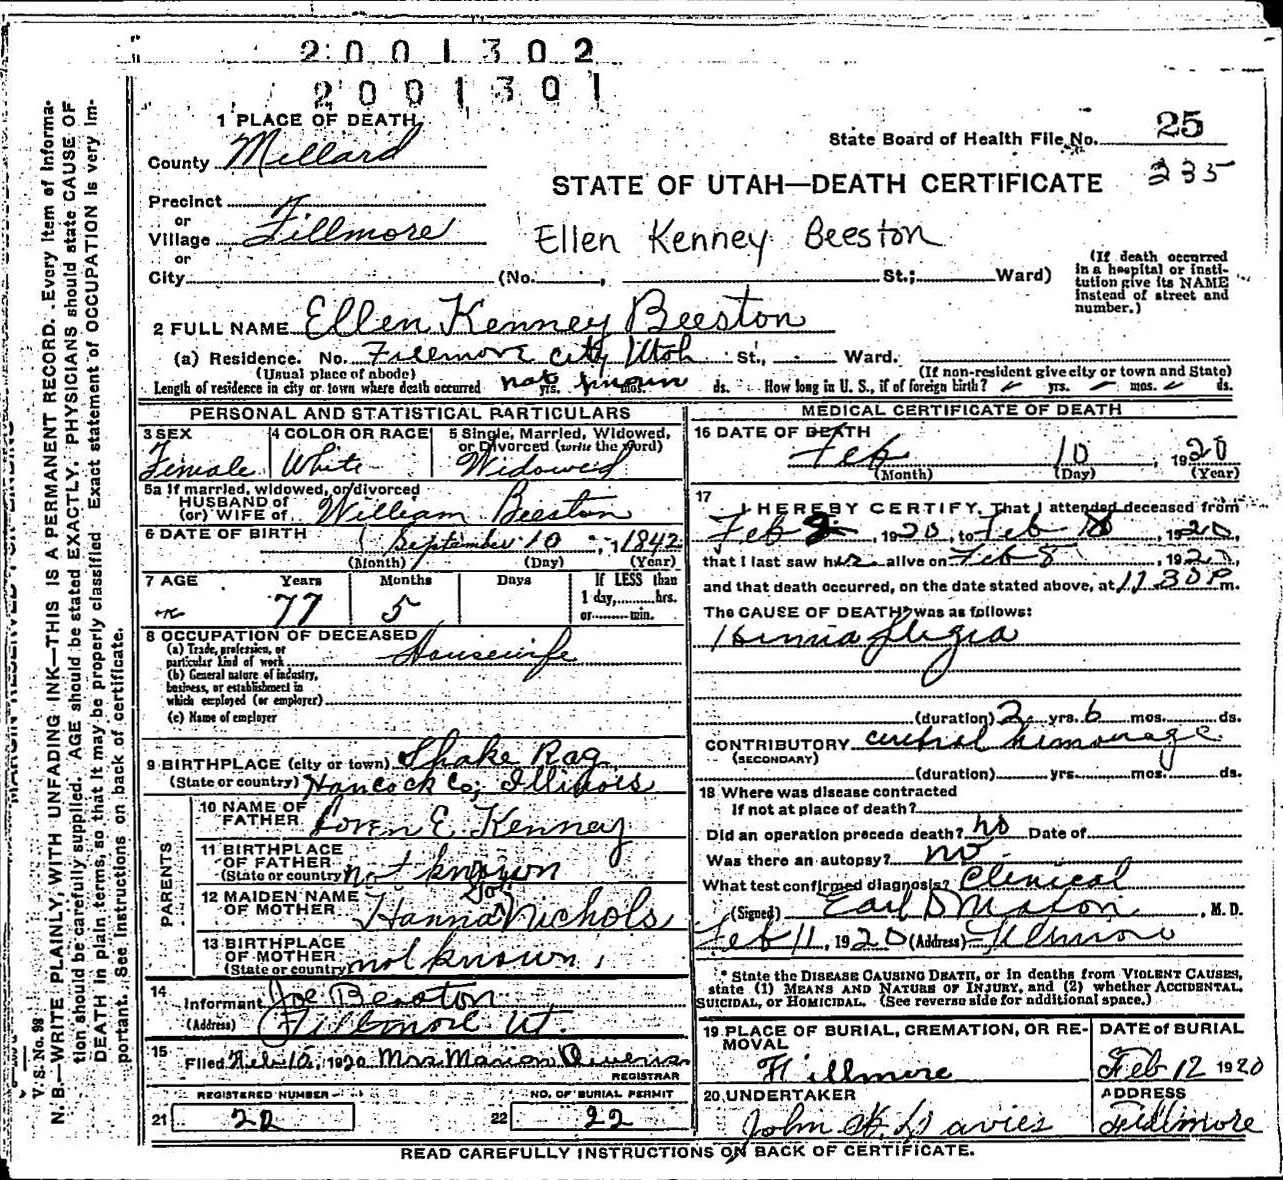 2001302
2001301
1 PLACE OF DEATH
County Millard
State Board of Health File No. 25
235
STATE OF UTAH—DEATH CERTIFICATE
Precinct
or
Village Fillmore
or
Ellen Kenney Beeston
City (No. , St.; Ward)
(If death occurred in a hospital or institution give its NAME instead of street and number.)
2 FULL NAME Ellen Kenney Beeston
(a) Residence. No. Fillmore City Utah St., Ward.
(Usual place of abode) (If non-resident give city or town and State)
Length of residence in city or town where death occurred not known yrs. mos. ds. How long in U. S., if of foreign birth? yrs. mos. ds.
PERSONAL AND STATISTICAL PARTICULARS
3 SEX Female
4 COLOR OR RACE White
5 Single, Married, Widowed, or Divorced (write the word) Widowed
5a If married, widowed, or divorced
HUSBAND of
(or) WIFE of William Beeston
6 DATE OF BIRTH September 10, 1842
(Month) (Day) (Year)
7 AGE Years 77 Months 5 Days If LESS than 1 day, hrs. or min.
8 OCCUPATION OF DECEASED
(a) Trade, profession, or particular kind of work Housewife
(b) General nature of industry, business, or establishment in which employed (or employer)
(c) Name of employer
9 BIRTHPLACE (city or town) Shake Rag
(State or country) Hancock Co; Illinois
PARENTS
10 NAME OF FATHER Loren E Kenney
11 BIRTHPLACE OF FATHER (State or country) not known
12 MAIDEN NAME OF MOTHER Hanna Nichols
13 BIRTHPLACE OF MOTHER (State or country) not known
14 Informant Joe Beeston
(Address) Fillmore Ut.
15 Filed Feb 1920 Mrs. Marion
REGISTRAR
REGISTERED NUMBER
21 22
NO. OF BURIAL PERMIT
22 22
MEDICAL CERTIFICATE OF DEATH
16 DATE OF DEATH Feb 10, 1920
(Month) (Day) (Year)
17 I HEREBY CERTIFY, That I attended deceased from
Feb 1920, to Feb 8 1920,
that I last saw her alive on Feb 8, 192
and that death occurred, on the date stated above, at 11 30 P m.
The CAUSE OF DEATH* was as follows:
(duration) 2 yrs. 6 mos. ds.
CONTRIBUTORY
(SECONDARY)
(duration) yrs. mos. ds.
18 Where was disease contracted
If not at place of death?
Did an operation precede death? No Date of
Was there an autopsy? no
What test confirmed diagnosis? Clinical
(Signed) Earl D Mason, M. D.
Feb 11, 1920 (Address) Fillmore
* State the DISEASE CAUSING DEATH, or in deaths from VIOLENT CAUSES, state (1) MEANS AND NATURE OF INJURY, and (2) whether ACCIDENTAL, SUICIDAL, or HOMICIDAL. (See reverse side for additional space.)
19 PLACE OF BURIAL, CREMATION, OR REMOVAL Fillmore
DATE of BURIAL Feb 12 1920
20 UNDERTAKER John Davies
ADDRESS Fillmore
READ CAREFULLY INSTRUCTIONS ON BACK OF CERTIFICATE.
V. S. No. 98
N. B.—WRITE PLAINLY, WITH UNFADING INK—THIS IS A PERMANENT RECORD. Every item of information should be carefully supplied. AGE should be stated EXACTLY. PHYSICIANS should state CAUSE OF DEATH in plain terms, so that it may be properly classified. Exact statement of OCCUPATION is very important. See instructions on back of certificate.